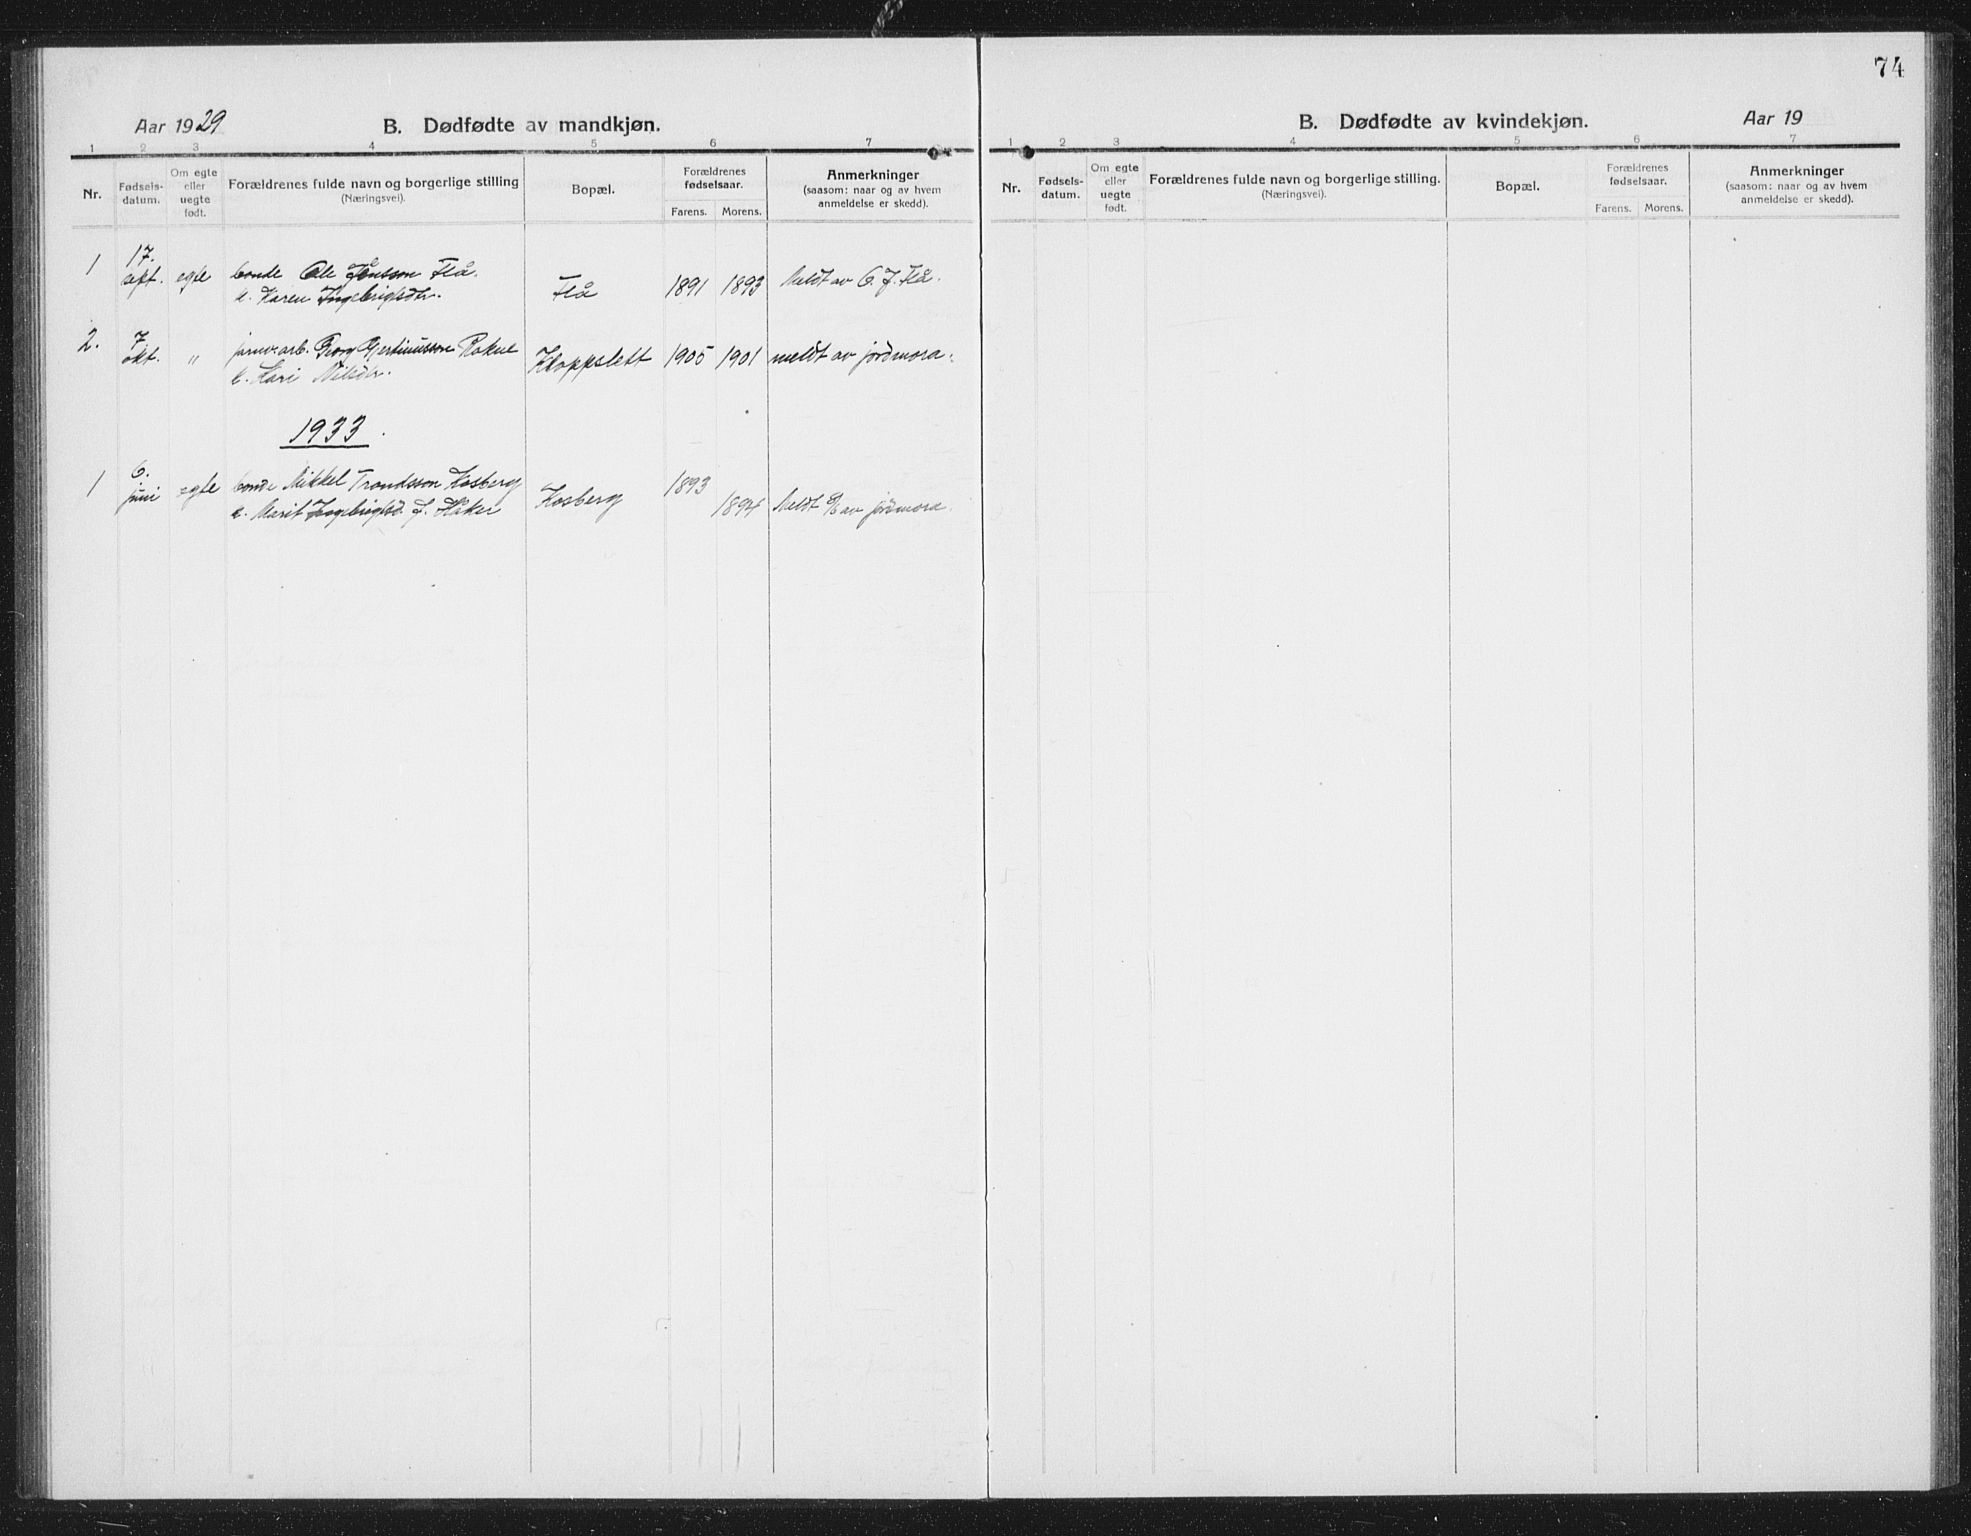 74
Aar 1929 B. Dødfødte av mandkjøn.
1 2 3 4 5 6 7
Nr. Fødsels-datum. Om egte eller uegte født. Forældrenes fulde navn og borgerlige stilling (Næringsvei). Bopæl. Forældrenes fødselsaar. Farens. Morens. Anmerkninger (saasom: naar og av hvem anmeldelse er skedd).
1 17. sept. egte bonde Ole Jónsson Flå. Flå 1891 1893 Meldt av O. J. Flå.
k. Karen Ingebrigtsdtr.
2. 7. okt. " jarnv.arb. Georg Gjertinusson Rokne Kloppslett 1905 1901 meldt av jordmora.
k. Kari Nilsdtr.
1933.
1 6. juni egte bonde Mikkel Trondsson Kosberg Kosberg 1893
k. Marit Ingebrigtsd. f. Haker 1894 Meldt av jordmora.
B. Dødfødte av kvindekjøn. Aar 19
1 2 3 4 5 6 7
Nr. Fødsels-datum. Om egte eller uegte født. Forældrenes fulde navn og borgerlige stilling. (Næringsvei). Bopæl. Forældrenes fødselsaar. Farens. Morens. Anmerkninger (saasom: naar og av hvem anmeldelse er skedd).